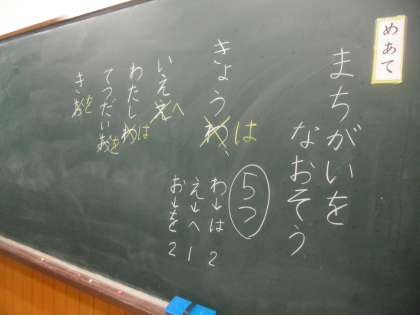 めあて
まちがいを
なおそう
きょうわ、は
いええへ
わたしわは
てつだいおを
きおを
5つ
わ↓は 2
え↓へ 1
お↓を 2